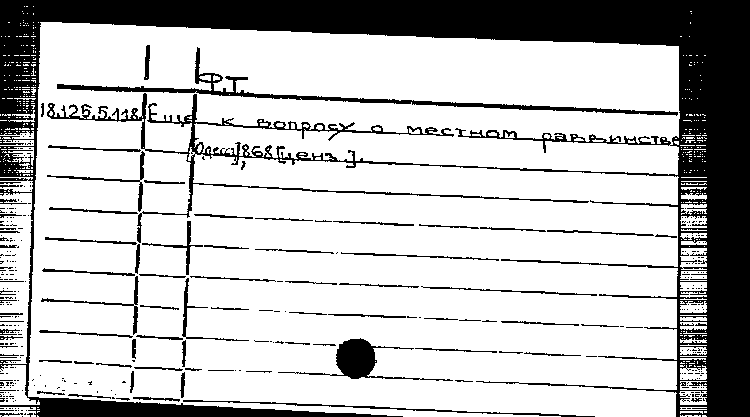 Ф.Т.
18.125.5.118 Еще к вопросу о местном раввинстве
[Одесса], 868 [ценз.].